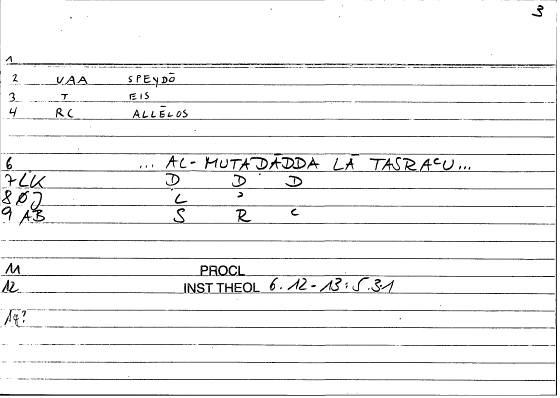 3
1
2 VAA SPEYDŌ
3 T EIS
4 RC ALLĒLOS
6 ... AL-MUTAḌĀDDA LĀ TASRAʿU...
7 LK D D D
8 ØJ L ʾ
9 AB S R ʿ
11 PROCL
12 INST THEOL 6.12-13:5.31